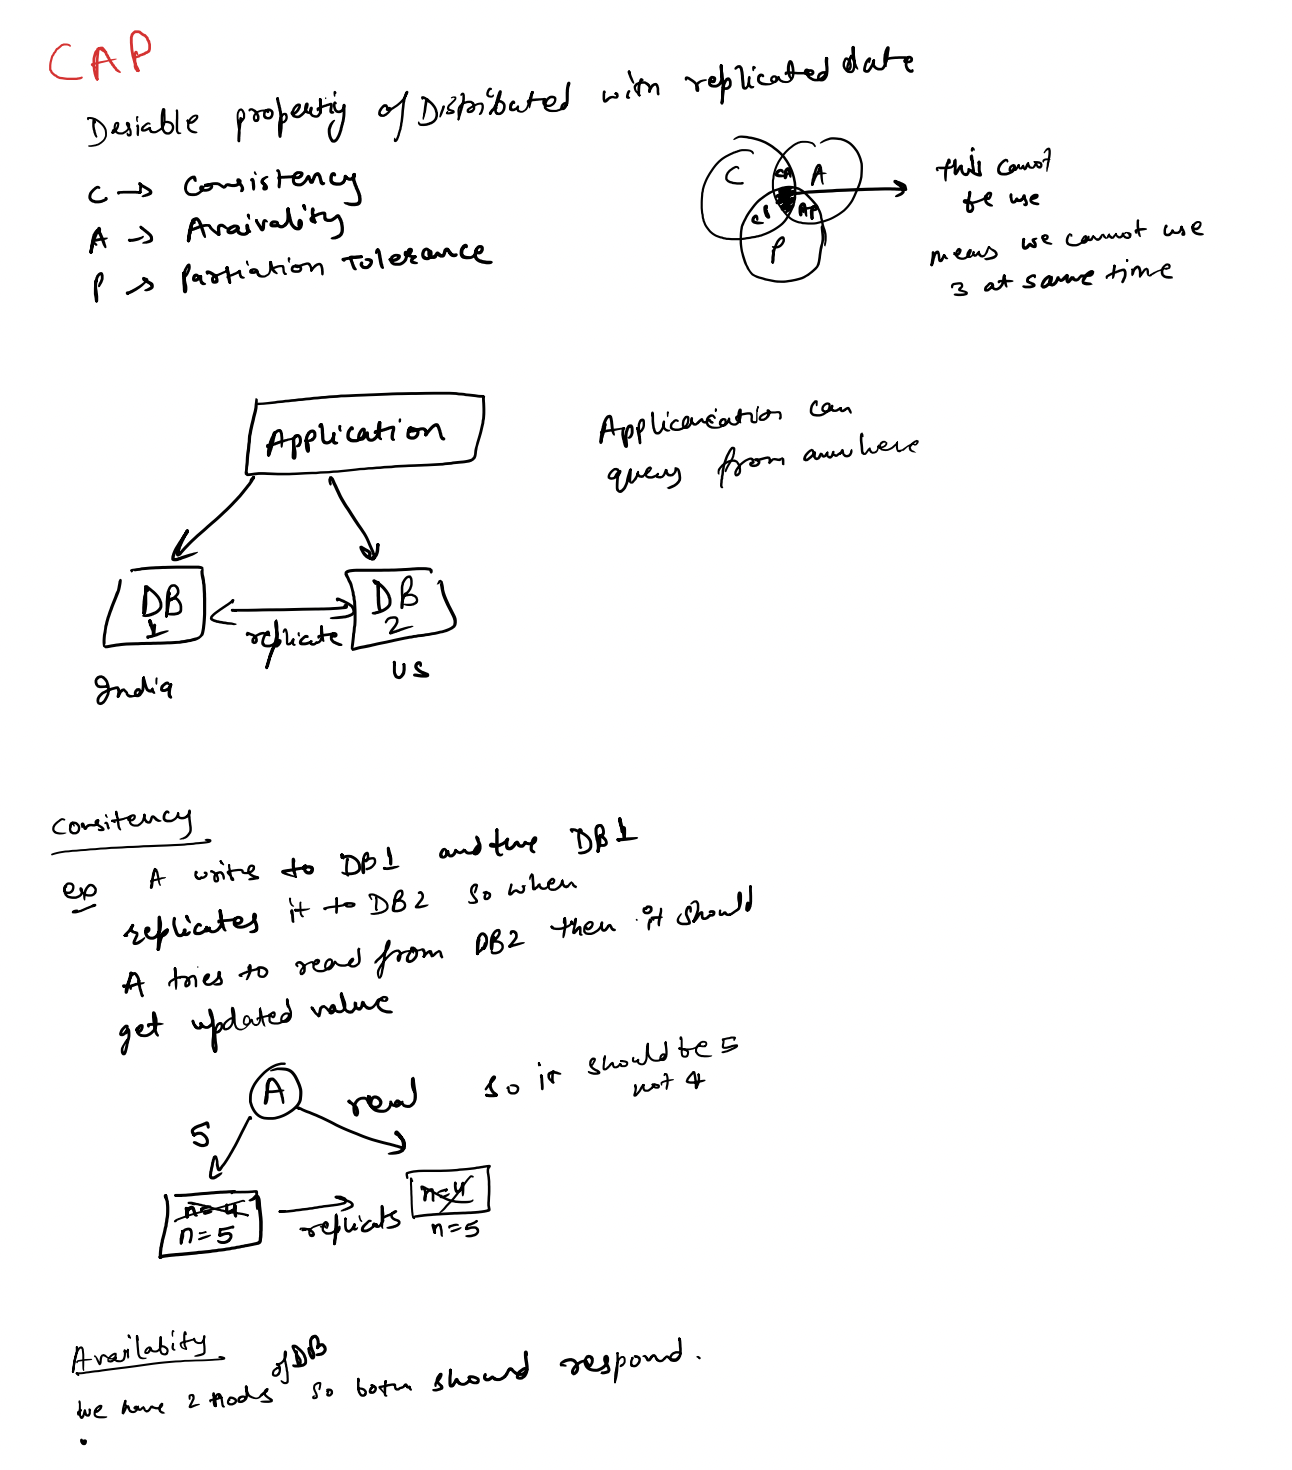 CAP
Desiable propertiy of Distributed with replicated date
C → Consistency
A → Avaivality
P → Partiation Tolerance
C CA A
CP AP
P
this cannot
be use
means we cannot use
3 at same time
Application
Applicanication can
query from anuwhere
DB
1
DB
2
replicate
India
US
Consitency
ex A writs to DB1 and the DB1
replicates it to DB2 so when
A tries to read from DB2 then it should
get updated value
A
5
read
so it should be 5
not 4
n=4
n=5
replicats
n=4
n=5
Availabity
of DB
We have 2 nods so both should respond.